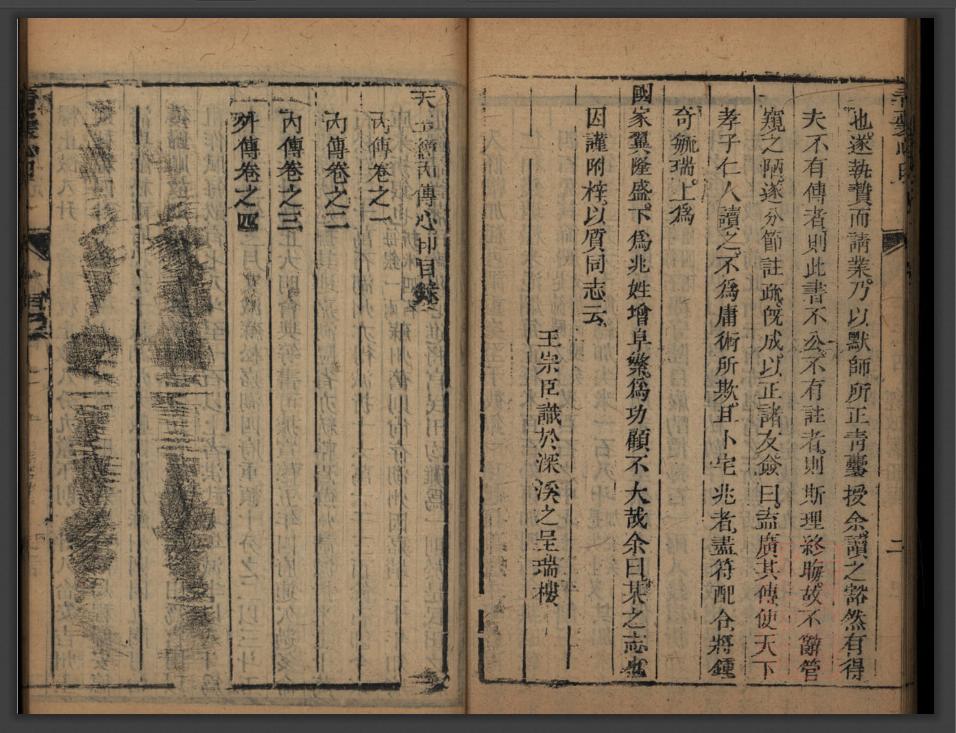 也遂執贄而請業乃以默師所正青囊授余讀之豁然有得
夫不有傳者則此書不公不有註者則斯理終晦故不辭管
窺之陋遂分節註疏旣成以正諸友僉曰盍廣其傳使天下
孝子仁人讀之不爲庸術所欺且卜宅兆者盡符配合將鍾
奇毓瑞上爲
國家翼隆盛下爲兆姓增阜樂爲功顧不大哉余曰某之志也
因謹附梓以質同志云
王崇臣識於深溪之呈瑞樓
青囊心印
二
天 傳心印目錄
內傳卷之一
內傳卷之二
內傳卷之三
外傳卷之四
青囊心印
目